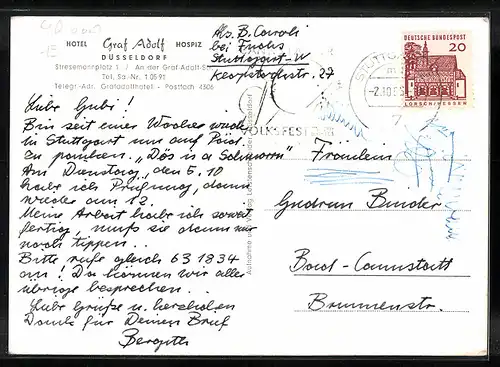 HOTEL Graf Adolf HOSPIZ
DÜSSELDORF
Stresemannplatz 1 / An der Graf-Adolf-S
Tel. Sa. Nr. 1 05 91
Telegr.-Adr. Grafadolfhotel - Postfach 4306
Abs. B. Caroli
bei Fuchs
Stuttgart-W
Klopstockstr. 27
DEUTSCHE BUNDESPOST
20
LORSCH/HESSEN
STUTTG
-2.10.65
7
VOLKSFEST
Liebe Gudi!
Bin seit einer Woche wieder
in Stuttgart um auf Päd.
zu pauken. „Dös is a Schmorrn"
Am Dienstag, den 5.10
habe ich Prüfung, dann
wieder am 12.
Meine Arbeit habe ich soweit
fertig, muß sie dann nur
noch tippen.
Bitte rufe gleich 63 1834
an! Da können wir alles
übrige besprechen.
Liebe Grüße u. herzlichen
Dank für Deinen Brief
Bergith
Aufnahme und Verlag
Fräulein
Gudrun Binder
Bad-Cannstatt
Brunnenstr.